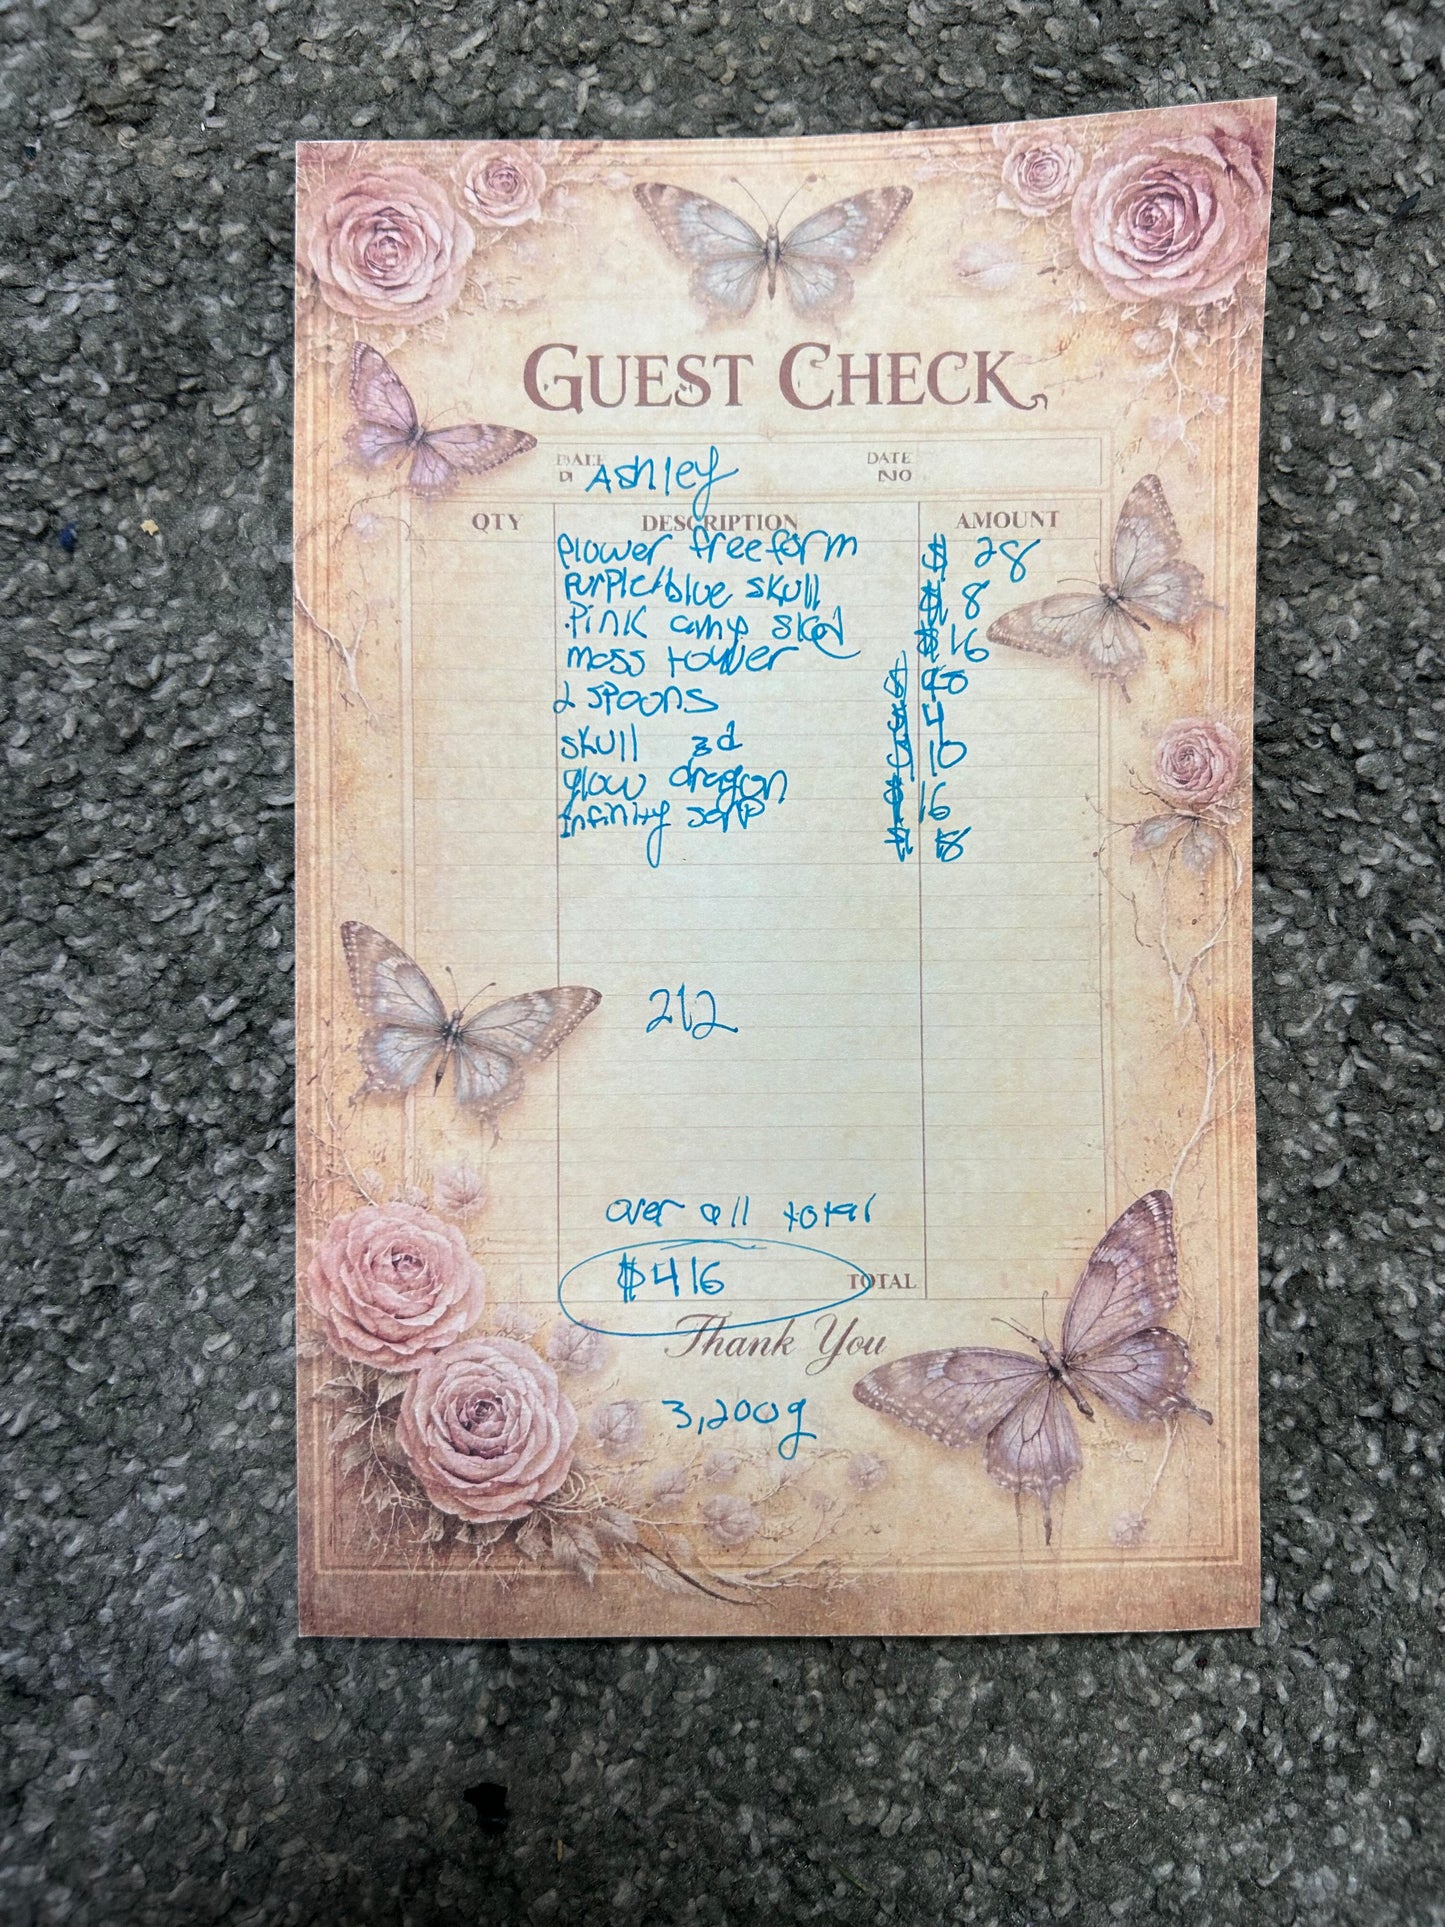 GUEST CHECK
DATE
Ashley
DATE
NO
QTY DESCRIPTION AMOUNT
flower freeform $ 28
purple/blue skull $ 8
Pink amy $16
moss tower $ 40
2 spoons $ 4
skull 3d $ 10
glow dragon $ 16
Infinity soap $ 8
212
over all total
$416 TOTAL
Thank You
3,200g